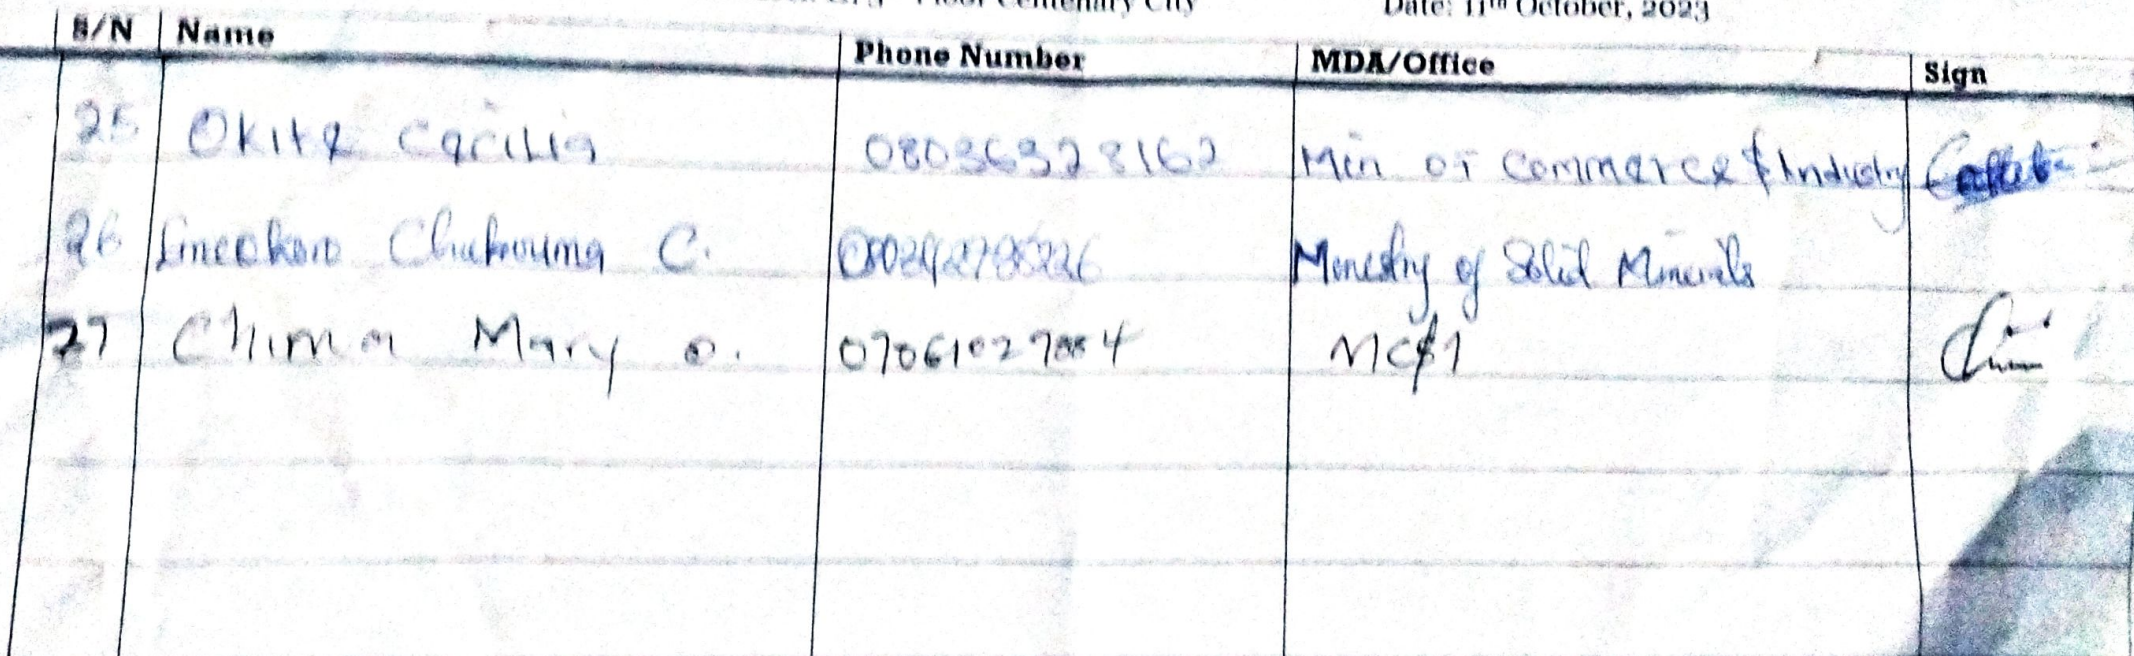 Floor Centenary City Date: 11th October, 2023
S/N Name Phone Number MDA/Office Sign
25 Okite Cecilia 08036328162 Min of Commerce & Industry
26 Chukwuma C. Menestry of Solid Minerals
27 Chima Mary O. MC&I